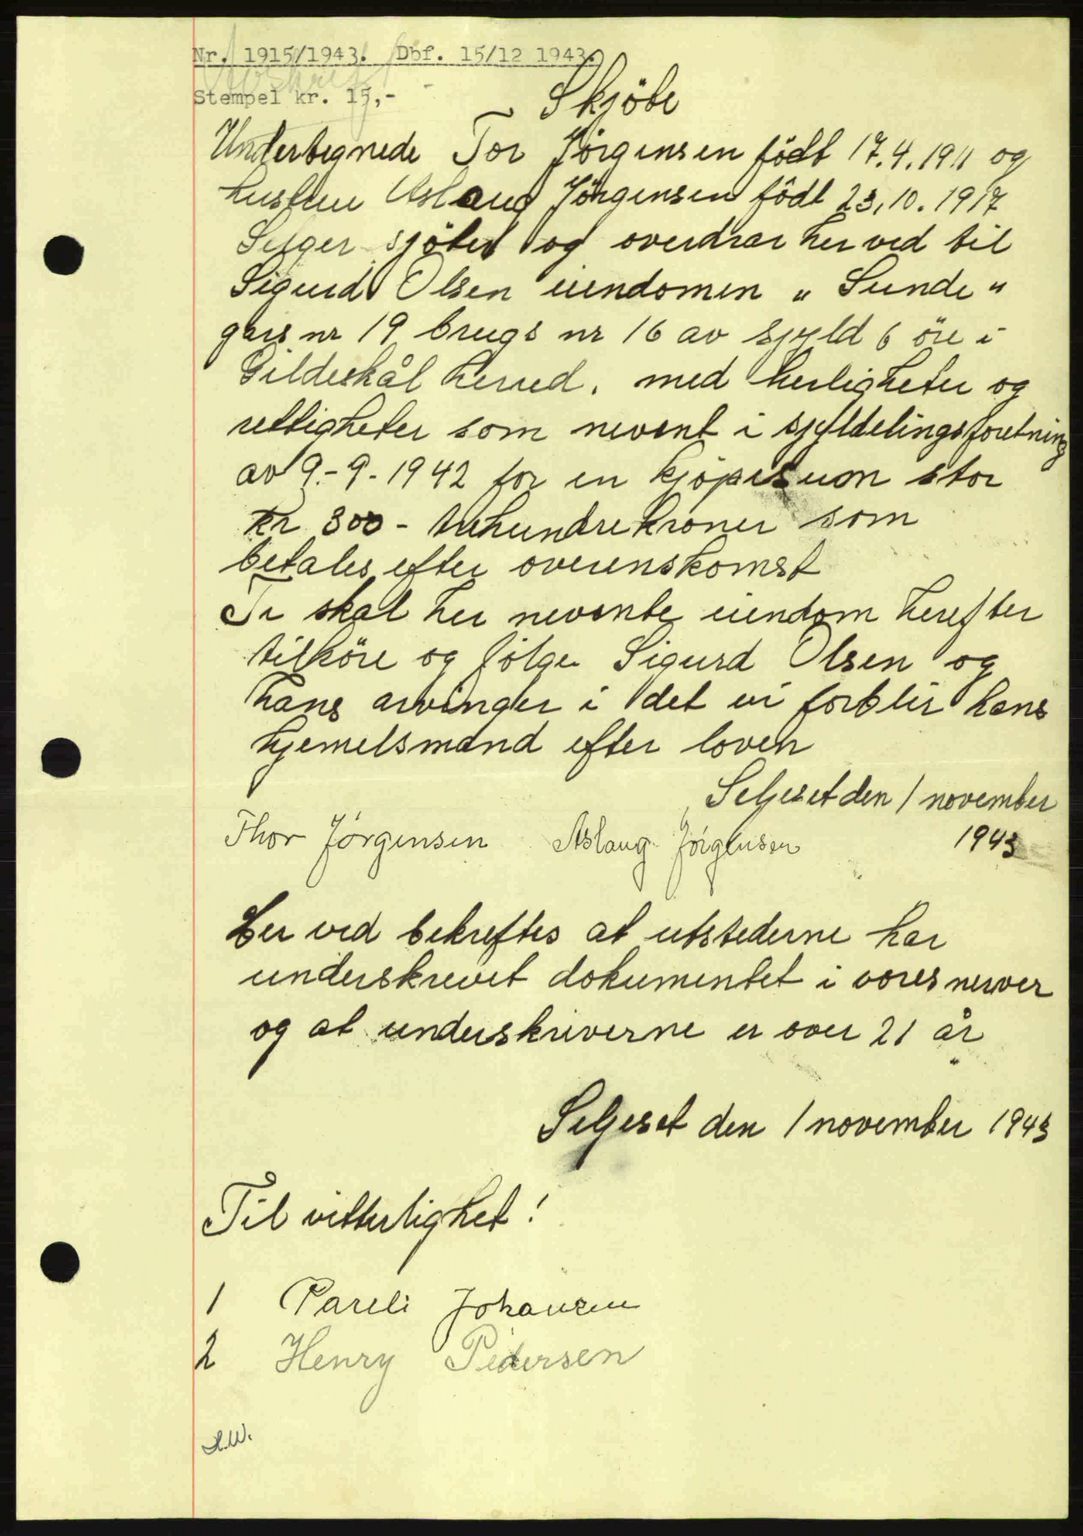 Nr. 1915/1943. Dbf. 15/12 1943.
Avskrift
Stempel kr. 15,-
Skjöte
Undertegnede Tor Jörgensen födt 17.4.1911 og
hustru Aslaug Jörgensen födt 23.10.1917
Selger sjöter og overdrar her ved til
Sigurd Olsen eiendomen „ Sunde “
gårs nr 19 brugs nr 16 av sjyld 6 öre i
Gildeskål herred. med herligheter og
rettigheter som nevent i sjyldelingsforetning
av 9.-9-1942 for en kjöpesuon stor
Kr 300- trehundrekroner som
betales efter overenskomst
Ti skal her nevente eiendom herefter
tilhöre og fölge Sigurd Olsen og
hans arvinger i det vi forblir hans
hjemelsmand efter loven
Seljeset den 1 november
1943
Thor Jörgensen Aslaug Jörgensen
Her ved bekreftes at utstederne har
underskrevet dokumentet i vores nerver
og at underskriverne er over 21 år
Seljeset den 1 november 1943
Til vitterlighet!
1 Pareli Johansen
2 Henry Pedersen
H.W.